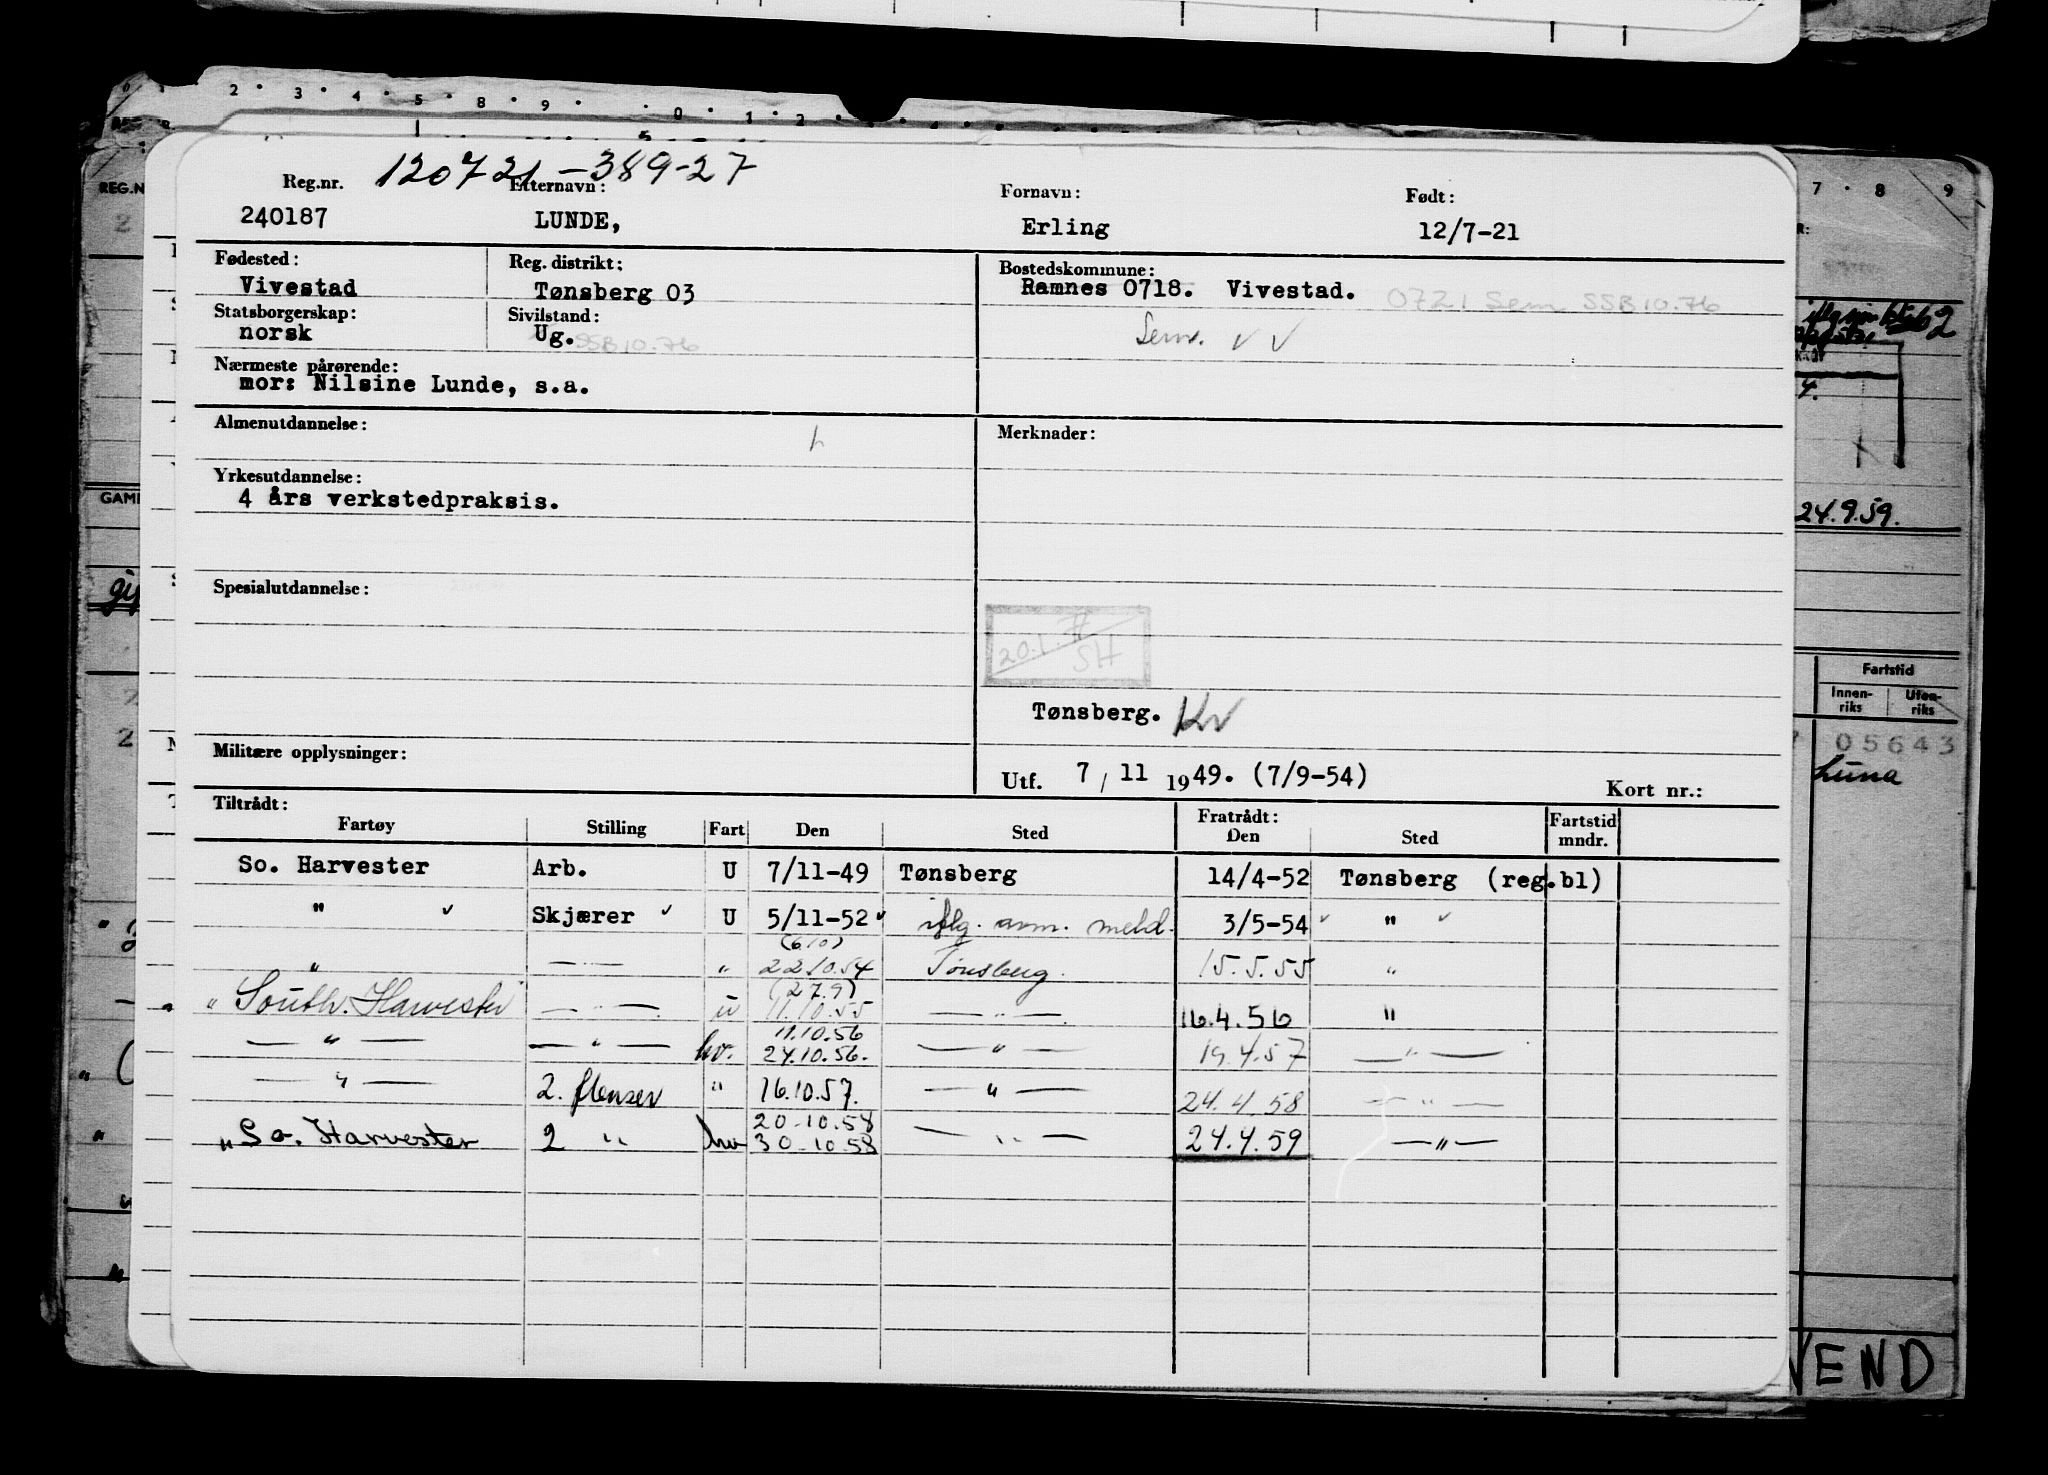 120721-389-27
Reg.nr. Etternavn: Fornavn: Født:
240187 LUNDE, Erling 12/7-21
Fødested: Reg. distrikt: Bostedskommune:
Vivestad Tønsberg 03 Ramnes 0718. Vivestad. 0721 Sem SSB 10.76
Statsborgerskap: Sivilstand:
norsk Ug. SSB 10.76 Sem. ✓ ✓
Nærmeste pårørende:
mor: Nilsine Lunde, s.a.
Almenutdannelse: Merknader:
Yrkesutdannelse:
4 års verkstedpraksis.
Spesialutdannelse:
20.1.77
SH
Tønsberg. Kv
Militære opplysninger:
Utf. 7/11 1949. (7/9-54) Kort nr.:
Tiltrådt: Fratrådt: Fartstid
Fartøy Stilling Fart Den Sted Den Sted mndr.
So. Harvester Arb. U 7/11-49 Tønsberg 14/4-52 Tønsberg (reg.bl)
" ✓ Skjærer ✓ U 5/11-52 ✓ iflg. avm. meld. 3/5-54 ✓ " ✓
(6.10)
" — " — " 22.10.54 Tønsberg. 15.5.55 "
(27.9)
" South. Harvester — " — u 11.10.55 — " — 16.4.56 "
11.10.56
— " — — " — hv. 24.10.56. — " — 19.4.57 — " —
— " — 2. flenser " 16.10.57. — " — 24.4.58 — " —
20-10.58
" So. Harvester 2 " hv 30-10.58 — " — 24.4.59 — " —
REG.N
GAM
7 · 8 9
24.9.59.
Fartstid
Innen-
riks
Uten-
riks
05643
Luna
VEND